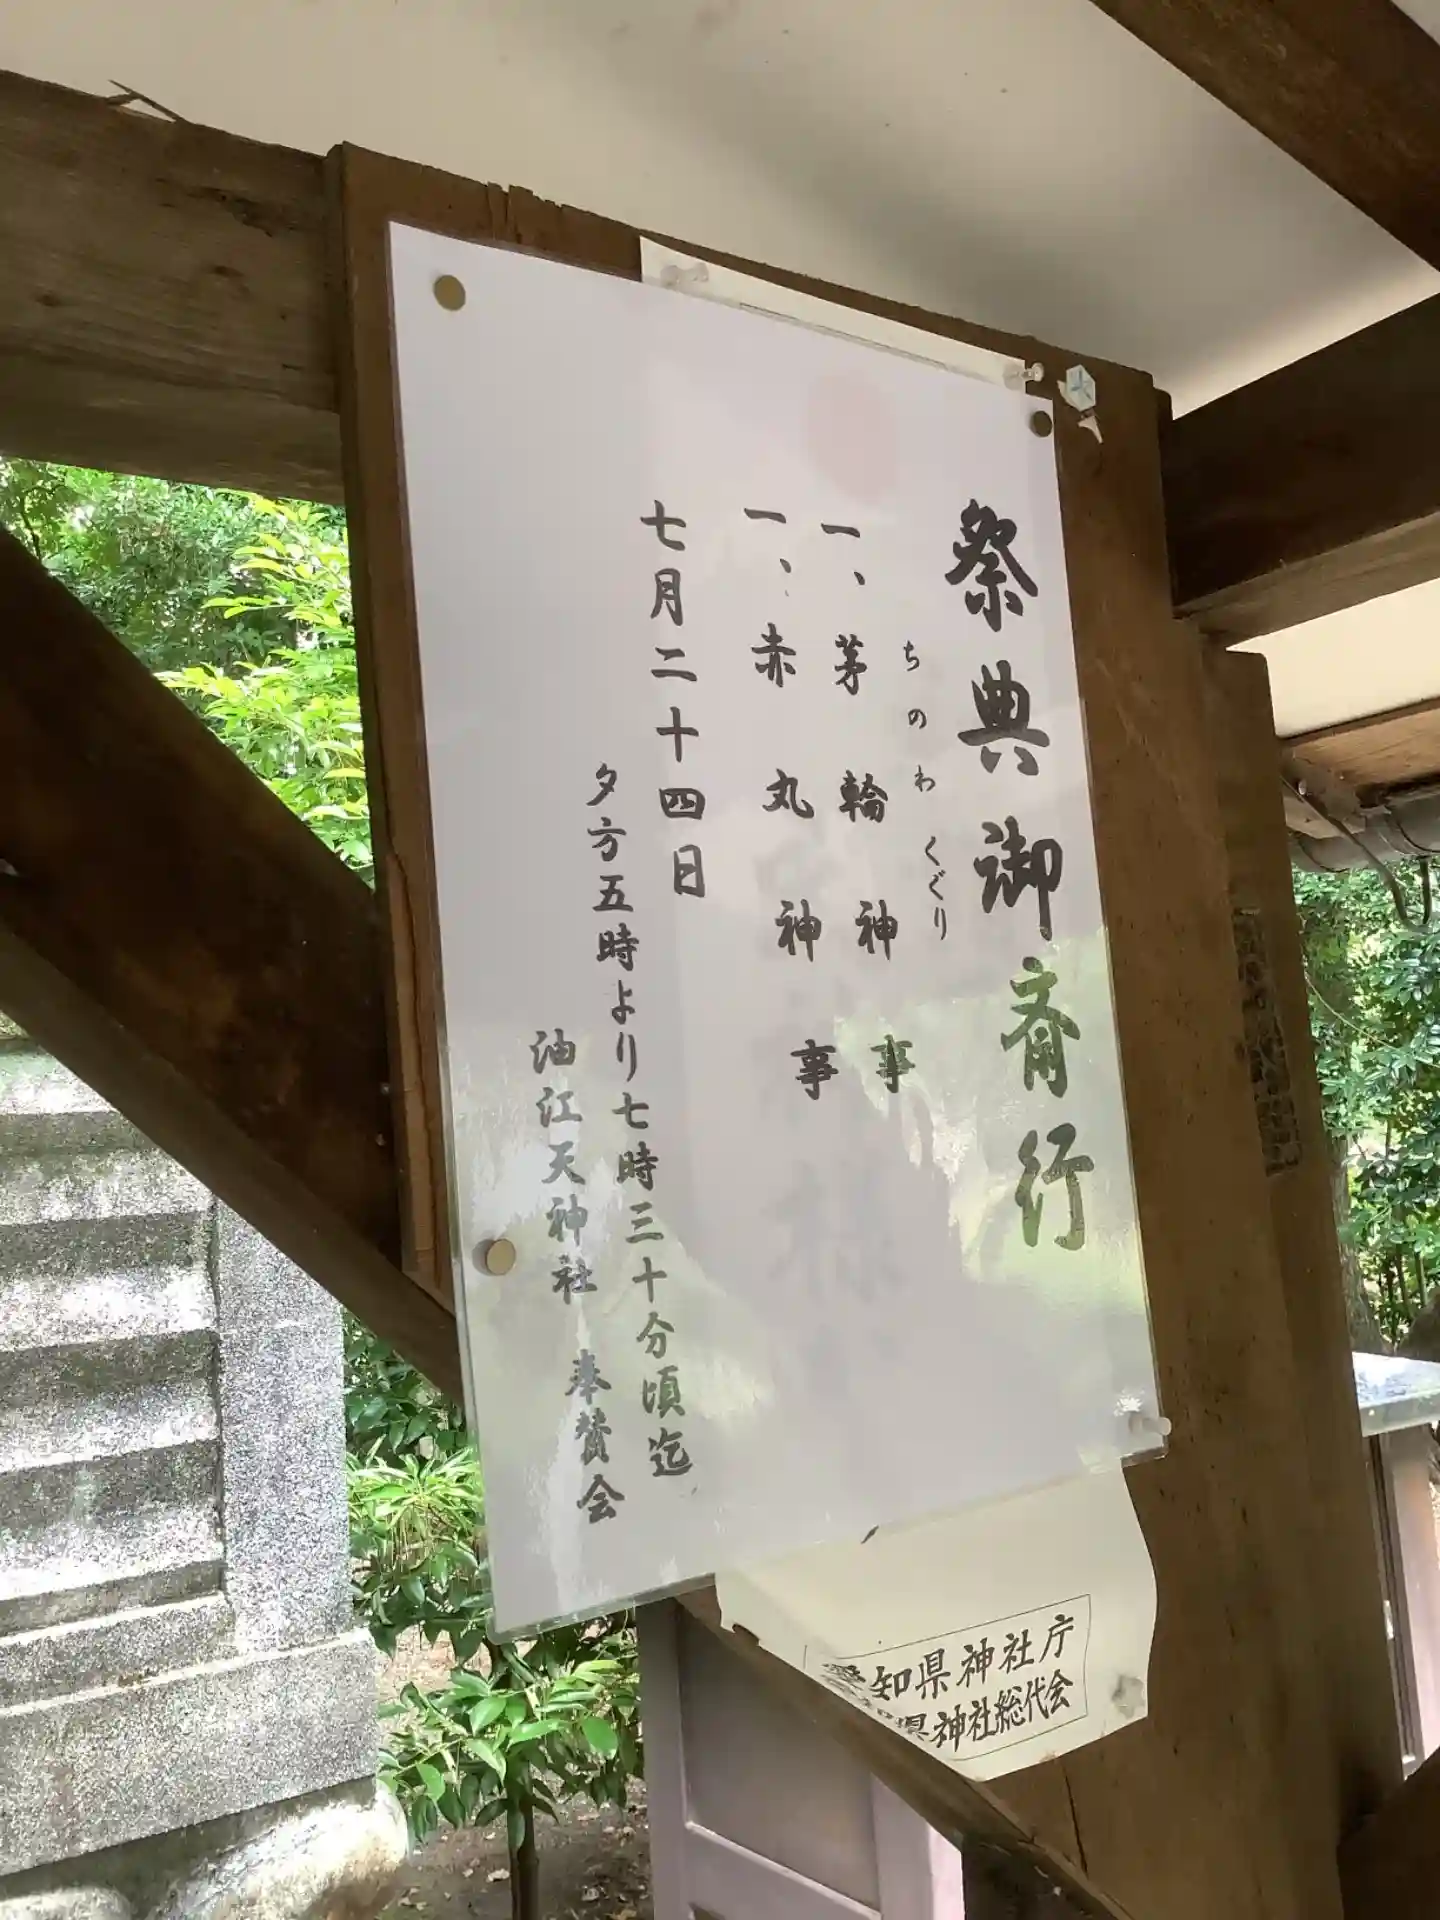 祭典御斎行
ちのわくぐり
一、茅輪神事
一、赤丸神事
七月二十四日
夕方五時より七時三十分頃迄
油江天神社 奉賛会
愛知県神社庁
県神社総代会